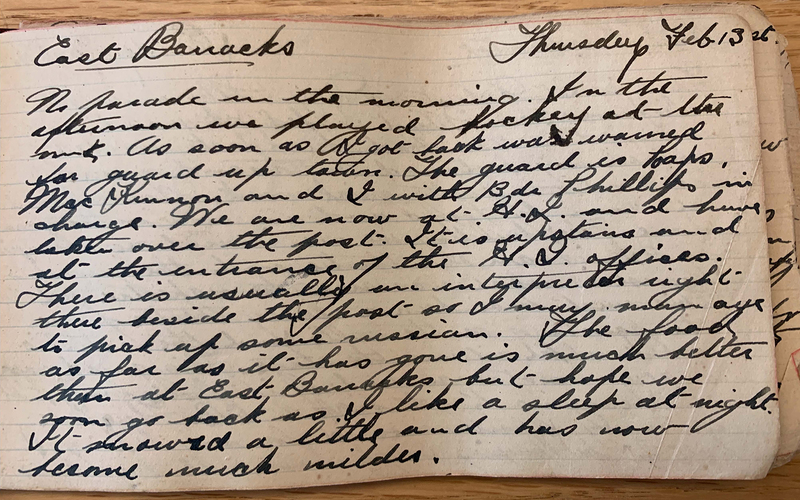 East Barracks Thursday Feb 13st.
No parade in the morning. In the
afternoon we played hockey at the
rink. As soon as I got back was warned
for guard up town. The guard is Caps,
MacKinnon and I with Bdr Phillips in
charge. We are now at H.Q. and have
taken over the post. It is upstairs and
at the entrance of the H.Q. offices.
There is usually an interpreter right
there beside the post so I may manage
to pick up some russian. The food
as far as it has gone is much better
than at East Barracks but hope we
soon go back as I like a sleep at night.
It snowed a little and has now
become much milder.